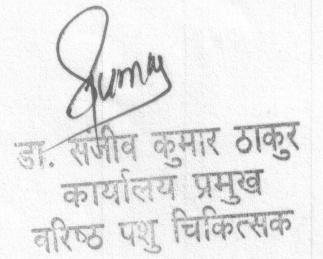 डा. संजीव कुमार ठाकुर
कार्यालय प्रमुख
वरिष्ठ पशु चिकित्सक